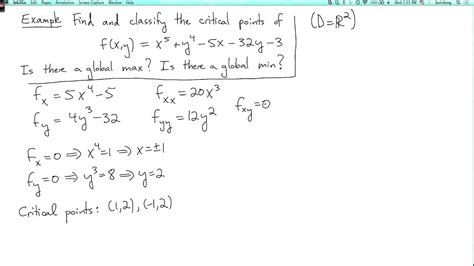 Example: Find and classify the critical points of (D=ℝ²)
f(x,y) = x⁵+y⁴-5x-32y-3
Is there a global max? Is there a global min?
f_x = 5x⁴-5 f_xx = 20x³ f_xy=0
f_y = 4y³-32 f_yy = 12y²
f_x=0 ⟹ x⁴=1 ⟹ x=±1
f_y=0 ⟹ y³=8 ⟹ y=2
Critical points: (1,2), (-1,2)